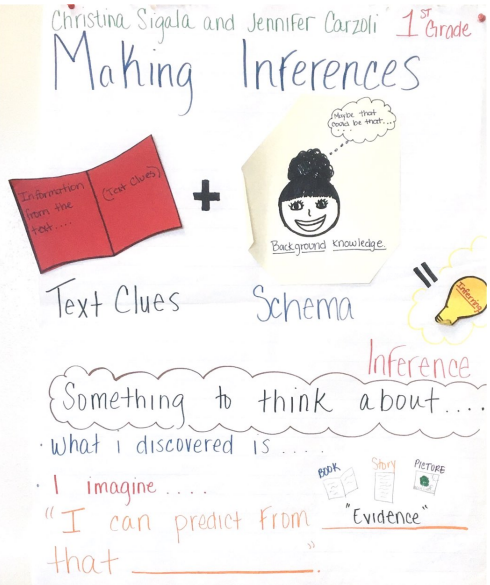 Christina Sigala and Jennifer Carzoli 1st Grade
Making Inferences
Maybe that
could be that...
Information
from the
text....
(Text Clues)
+
Background knowledge.
Text Clues
Schema
=
Inferring
Inference
Something to think about....
· What i discovered is ....
BOOK
Story
PICTURE
· I imagine ....
"I can predict from "Evidence"
that ____________."